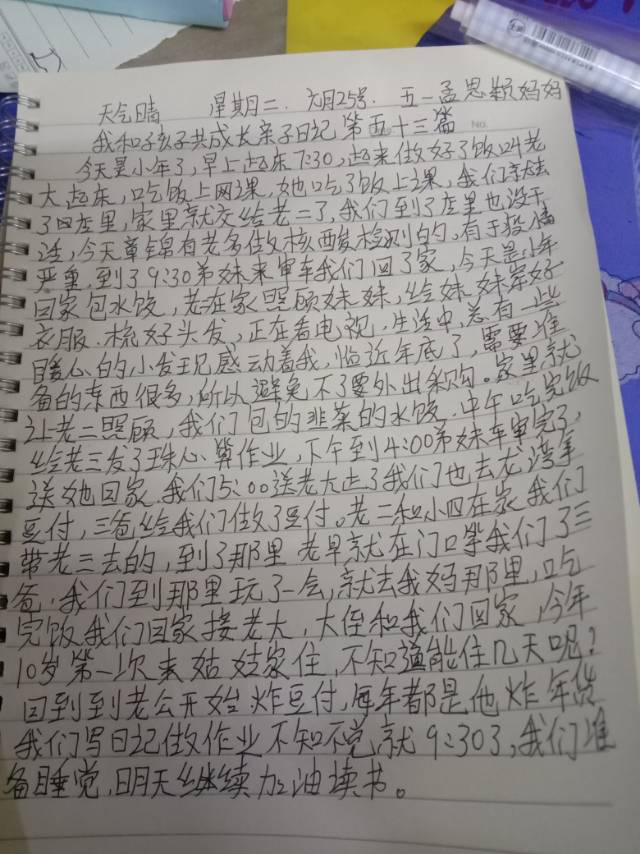 天气晴 星期二. 元月25号. 五一孟思颖妈妈
我和孩子共成长亲子日记 第五十三篇 No.
今天是小年了,早上起床7:30,起来做好了饭叫老
大起床,吃饭上网课,她吃了饭上课,我们就去
了四庄里,家里就交给老二了,我们到了庄里也没干
活,今天草锦有老多做核酸检测的,有于疫情
严重,到了9:30弟妹来审车我们回了家,今天是小年
回家包水饺,老在家照顾妹妹,给妹妹穿好
衣服.梳好头发,正在看电视.生活中,总有一些
暖心的小发现感动着我,临近年底了,需要准
备的东西很多,所以避免不了要外出采购。家里就
让老二照顾,我们包的韭菜的水饺.中午吃完饭
给老三发了珠心算作业,下午到4:00弟妹车审完了,
送她回家.我们5:00送老大走了我们也去龙湾拿
豆付,三爸给我们做了豆付。老二和小四在家我们
带老三去的,到了那里 老早就在门口等我们了三
爸,我们到那里玩了一会,就去我妈那里,吃
完饭我们回家接老大,大侄和我们回家,今年
10岁第一次来姑姑家住,不知道能住几天呢?
回到到老公开始炸豆付,每年都是他炸年货
我们写日记做作业不知不觉就9:303,我们准
备睡觉,明天继续加油读书。